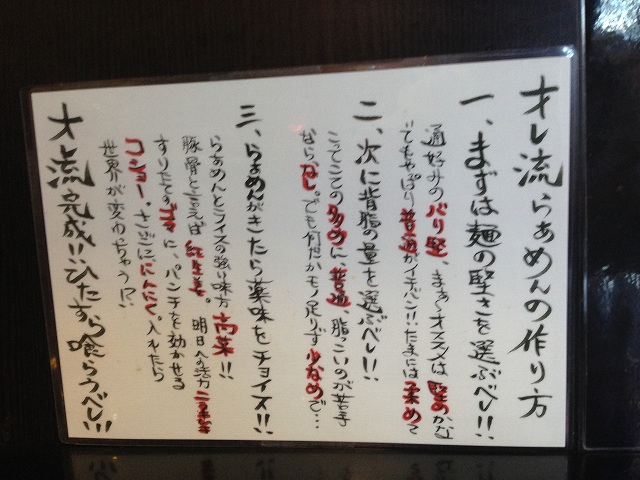 オレ流らぁめんの作り方
一、まずは麺の堅さを選ぶべし!!
通好みのバリ堅、まぁ〜オススメは堅めかな
でもやっぱり普通がイチバン!!たまには柔めで
二、次に背脂の量を選ぶべし!!
こってこての多めに、普通、脂っこいのが苦手
ならなし。でも何だかモノ足りず少なめで…
三、らぁめんがきたら薬味をチョイス!!
らぁめんとライスの強い味方高菜!!
豚骨と言えば紅生姜。明日への活力ニラキムチ
すりたてのゴマに、パンチを効かせる
コショー。さらににんにく。入れたら
世界が変わっちゃう!?
オレ流完成!!ひたすら喰らうべし!!!